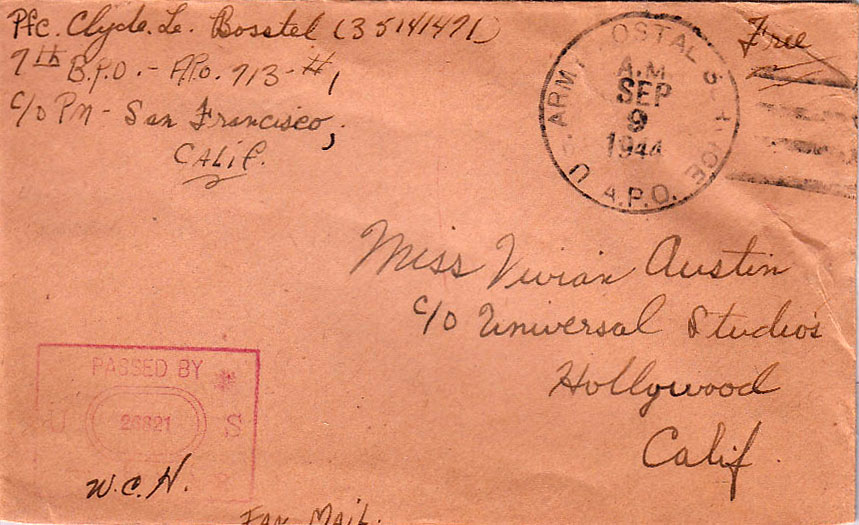 Pfc. Clyde. Le. Bosstel (35141471)
7th B.P.O. - A.P.o. 713 - #1
c/o PM - San Francisco,
CALIF.
Free
U.S. ARMY POSTAL SERVICE
A.M
SEP
9
1944
A.P.O.
Miss Vivian Austin
c/o Universal Studio's
Hollywood
Calif.
PASSED BY
U 26821 S
W.C.H.
Fan Mail.